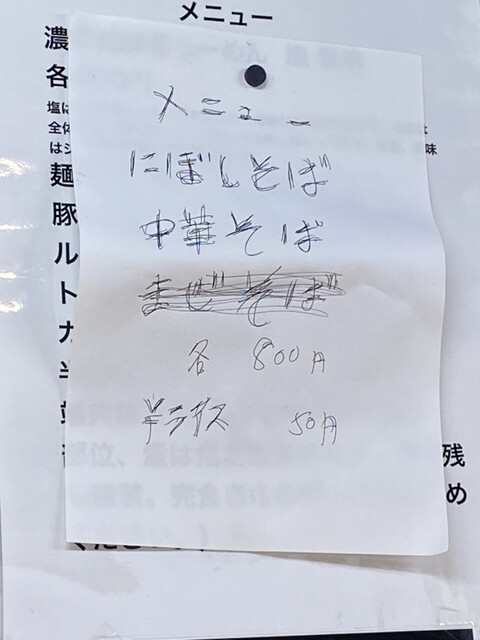 メニュー
濃
各
塩に
全体
はジ
味
麺
豚
ル
ト
カ
半
メニュー
にぼしそば
中華そば
まぜそば
各 800円
半ライス 50円
残
め